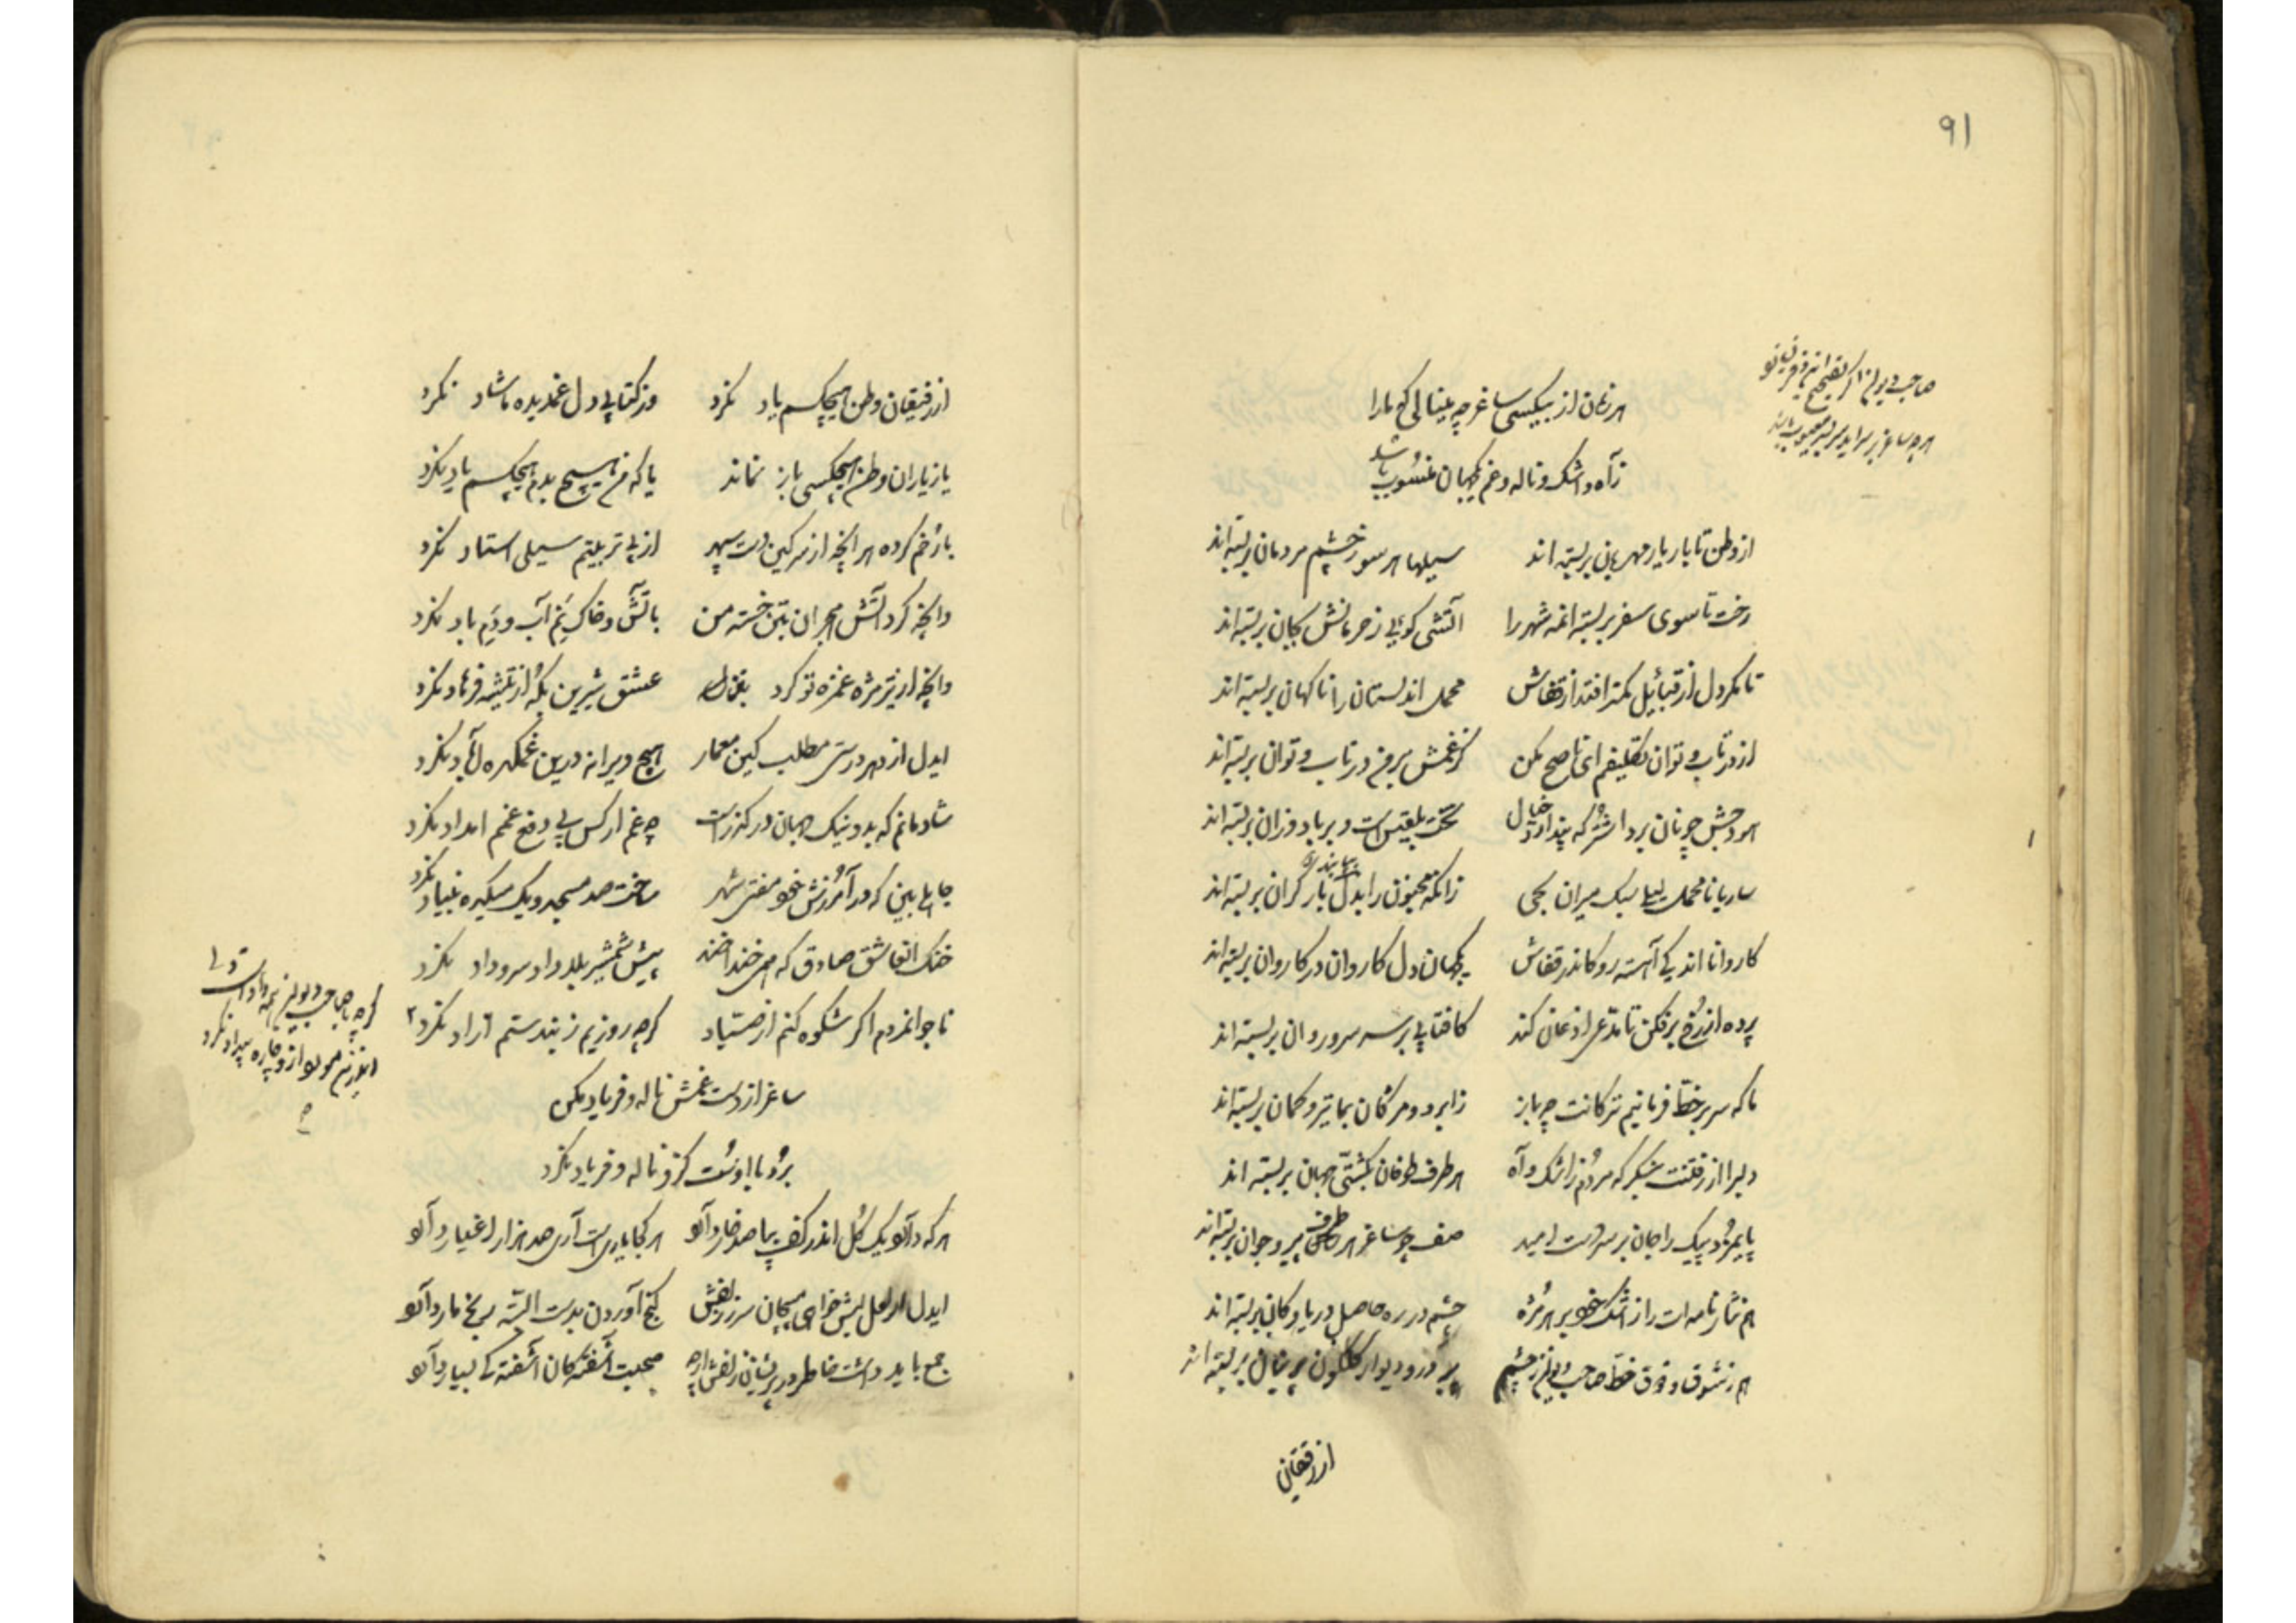 ۹۱
هر زمان از بیکسی ساغر چه مینالی که ما را
ز آه و اشک و ناله و غم پاسبان منسوب باشد
از وطن تا بار یار مهربان بربسته اند سیلها هر سو ز چشم مردمان بربسته اند
رخت تا سوی سفر بربسته اند مه شهر را آتشی گوئی ز حرمانش بجان بربسته اند
تا مگر دل از قبائل کمتر افتد از قفاش محمل اندلستان را ناگهان بربسته اند
از در تاب و توان تکلیفم ای ناصح مکن کز غمش بر من در تاب و توان بربسته اند
هودجش چونان برد اشتر که پندارد خیال تخت بلقیس است و بر باد وزان بربسته اند
ساربانا محمل لیلی سبک میران بحی زانکه مجنون را بدل بار گران بربسته اند
کاروانا اندکی آهسته رو کاندر قفاش یکجهان دل کاروان در کاروان بربسته اند
پرده از رخ برفکن تا مدعی اذعان کند کافتابی بر سر سرو روان بربسته اند
ما که سر بر خط فرمانیم ترکانت چه باز ز ابرو و مژگان بما تیر و کمان بربسته اند
دلبرا از رفتنت بنگر که مردم ز اشک و آه هر طرف طوفان بکشتی جهان بربسته اند
پایمزد پیک را جان بر سر دست امید صف چو ساغر هر طرف پیر و جوان بربسته اند
هم نثار نامه ات را ز اشک خود بر هر مژه چشم در ره حاصل دریا و کان بربسته اند
هم ز شوق و ذوق خط صاحب دیوان ز چشم بر در و دیوار گلگون پرنیان بربسته اند
از رفیقان
از رفیقان وطن هیچکسم یاد نکرد وز کتابی دل غمدیده ما شاد نکرد
یا ز یاران وطن هیچکسی باز نماند یا که من هیچ بدم هیچکسم یاد نکرد
با رخم کرده هر آنچه از سر کین دست سپهر از پی تربیتم سیلی استاد نکرد
وانچه کرد آتش هجران بتن خسته من باتش و خاک و نم آب و دم باد نکرد
وانچه از تیر مژه غمزه تو کرد عشق شیرین بگه از تیشه فرهاد نکرد
ایدل از دهر درستی مطلب کین معمار هیچ ویرانه درین غمکده آباد نکرد
شادمانم که بد و نیک جهان در گذر است چه غم ار کس پی دفع غمم امداد نکرد
جاهلی بین که در آمرزش خود مفتی شهر ساخت صد مسجد و یک میکده بنیاد نکرد
خنک آن عاشق صادق که همی خندا خند پیش شمشیر بلا داد سر و داد نکرد
ناجوانمردم اگر شکوه کنم از صیاد گرچه روزیم ز بند ستم آزاد نکرد
ساغر از دست غمش ناله و فریاد مکن
برد با اوست کزو ناله و فریاد نکرد
هر که دارد یک گل اندر کف بپا صد خار دارد هر کجا یاریست آری صد هزار اغیار دارد
ایدل ار لعل لبش خواهی مپیچان سر ز زلفش گنج آوردن بدست البته رنج مار دارد
جمع باید داشت خاطر در پریشانی زلفش ارچه صحبت آشفتگان آشفتگی بسیار دارد